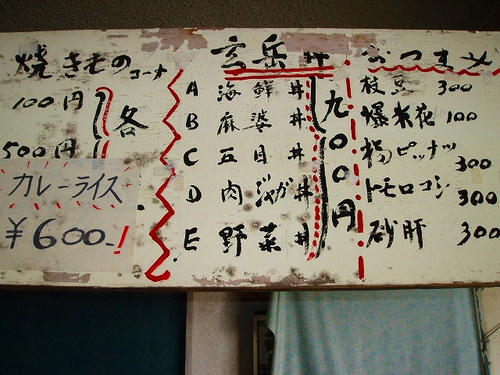 焼きものコーナー
100円
各
500円
カレーライス
¥600-!
玄岳丼
A 海鮮丼
B 麻婆丼
C 五目丼
D 肉ジャガ丼
E 野菜丼
九〇〇円
おつまみ
枝豆 300
爆米花 100
楊ピーナツ 300
トモロコシ 300
砂肝 300